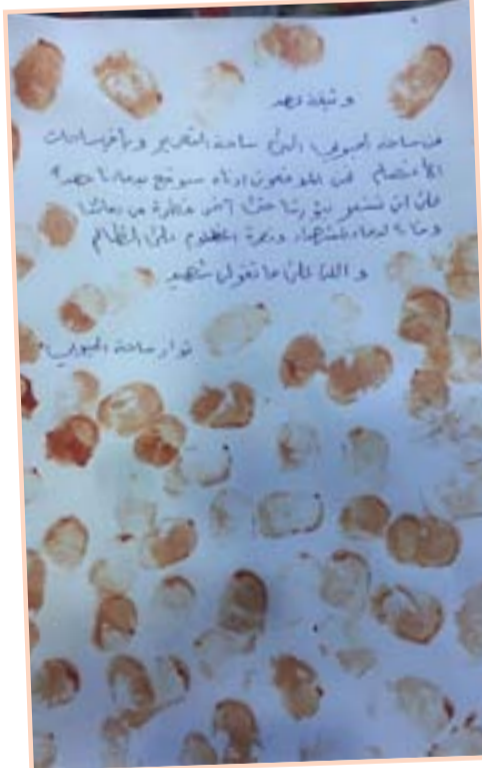 وثيقة عهد
من ساحة الحبوبي الى ساحة التحرير وباقي ساحات
الاعتصام نحن الموقعون ادناه سنوقع بدمائنا عهداً
على ان نستمر بثورتنا حتى آخر قطرة من دمائنا
وفاءاً لدماء الشهداء ونصرة المظلوم على الظالم
والله على ما نقول شهيد
ثوار ساحة الحبوبي